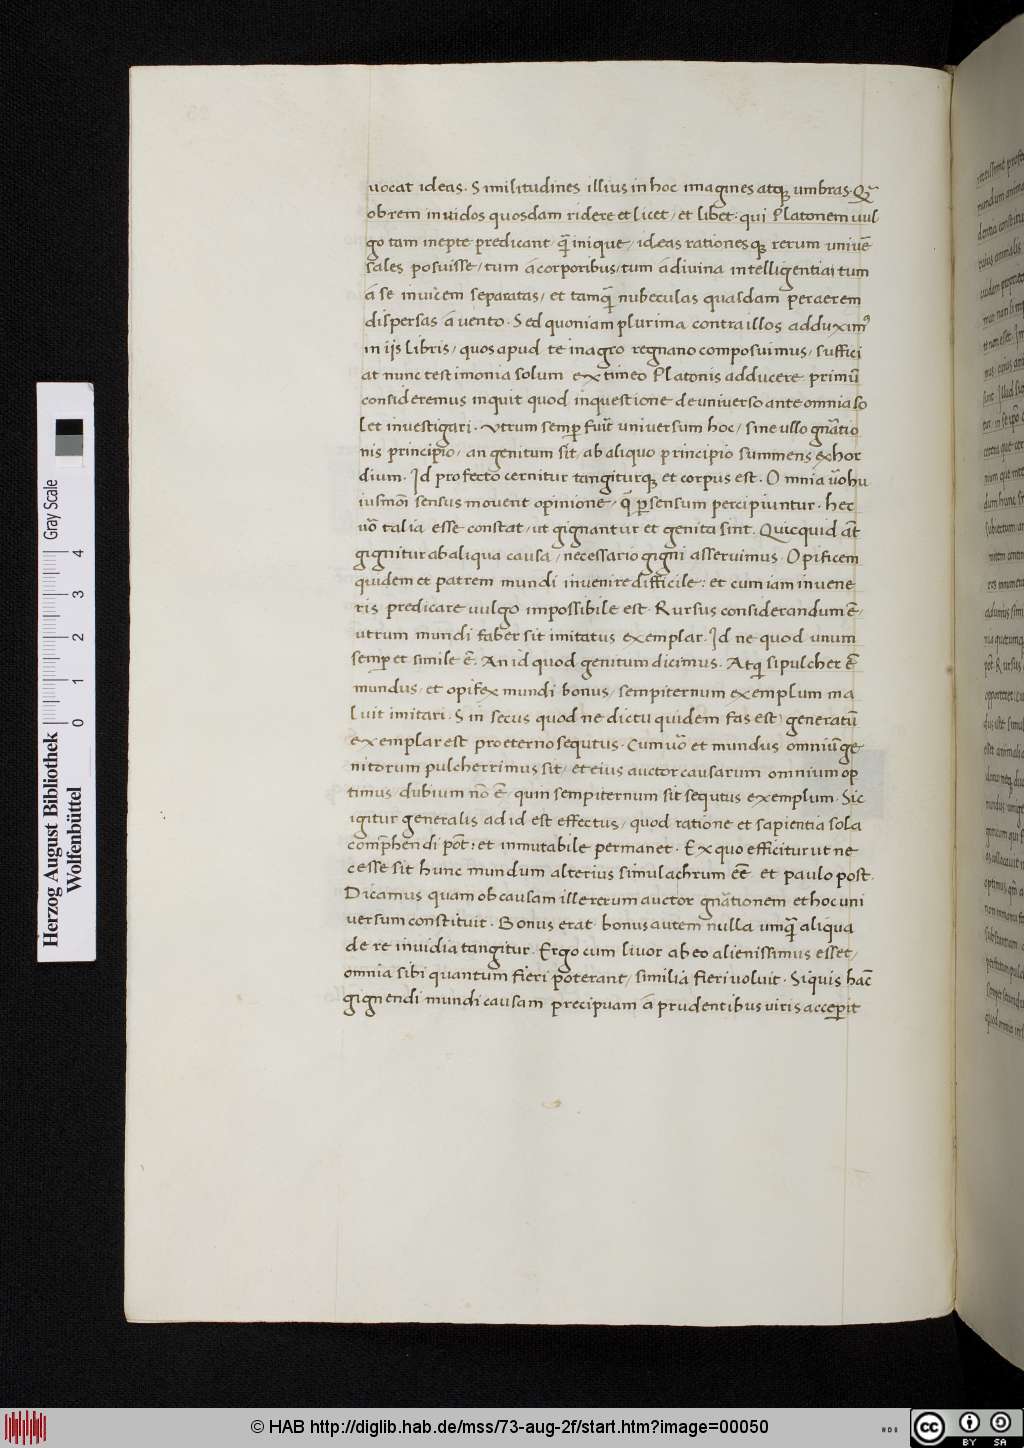 uocat ideas. Similitudines illius in hoc imagines atqꝫ umbras. Qᷓ
obrem inuidos quosdam ridere et licet, et libet. qui Platonem uul
go tam inepte predicant q̄ inique, ideas rationesqꝫ rerum uniuē
sales posuisse, tum á corporibus, tum á diuina intelligentia, tum
á se inuicem separatas, et tamq̄ nubeculas quasdam per aerem
dispersas á uento. Sed quoniam plurima contra illos adduximꝰ
in ijs libris, quos apud te in agro regnano composuimus, suffici
at nunc testimonia solum ex timeo Platonis adducere primū
consideremus inquit quod in questione de uniuerso ante omnia so
let inuestigari. Vtrum semꝑ fuīt uniuersum hoc, sine ullo gn̄atio
nis principio, an genitum sit, ab aliquo principio summens exhor
dium. Id profecto cernitur tangiturqꝫ et corpus est. Omnia ūo hu
iusmōi sensus mouent opinione, q̄ ꝑ sensum percipiuntur. hec
ūo talia esse constat, ut gignantur et genita sint. Quicquid aūt
gignitur ab aliqua causa, necessario gigni asseruimus. Opificem
quidem et patrem mundi inuenire difficile: et cum iam inuene
ris predicare uulgo impossibile est. Rursus considerandum ē,
utrum mundi faber sit imitatus exemplar. Id ne quod unum
semꝑ et simile ē. An id quod genitum dicimus. Atq̨ si pulcher ē
mundus, et opifex mundi bonus, sempiternum exemplum ma
luit imitari. Sin secus quod ne dictu quidem fas est, generatū
exemplar est pro eterno sequtus. Cum ūo et mundus omniū ge
nitorum pulcherrimus sit, et eius auctor causarum omnium op
timus, dubium nō ē, quin sempiternum sit sequtus exemplum. Sic
igitur generalis ad id est effectus, quod ratione et sapientia sola
comp̄hendi pōt: et inmutabile permanet. Ex quo efficitur ut ne
cesse sit hunc mundum alterius simulachrum eē et paulo post.
Dicamus quam ob causam ille rerum auctor gn̄ationem et hoc uni
uersum constituit. Bonus erat bonus autem nulla umq̄ aliqua
de re inuidia tangitur. Ergo cum liuor ab eo alienissimus esset,
omnia sibi quantum fieri poterant, similia fieri uoluit. Siquis hāc
gignendi mundi causam precipuam á prudentibus uiris acceꝑit
Herzog August Bibliothek
Wolfenbüttel
0 1 2 3 4
Gray Scale
© HAB http://diglib.hab.de/mss/73-aug-2f/start.htm?image=00050
cc BY SA